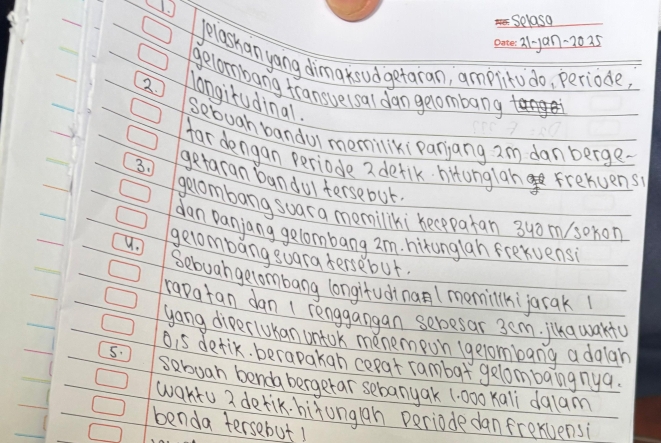 Selasa
Date: 21-jan-2025
1. jelaskan yang dimaksud getaran, amplitudo, Periode,
gelombang transversal dan gelombang
longitudinal.
2. Sebuah bandul memiliki Panjang 2m dan berge-
tar dengan Periode 2 detik. hitunglah Frekuensi
getaran bandul tersebut.
3. gelombang suara memiliki kecepatan 340 m/sekon
dan panjang gelombang 2m. hitunglah Frekuensi
gelombang suara tersebut.
4. Sebuah gelombang longitudinal memiliki jarak 1
rapatan dan 1 renggangan sebesar 3cm. jika waktu
yang diperlukan untuk menempuh 1 gelombang adalah
0,5 detik. berapakah cepat rambat gelombangnya.
5. Sebuah benda bergetar sebanyak 1.000 kali dalam
waktu 2 detik. hitunglah Periode dan frekuensi
benda tersebut!